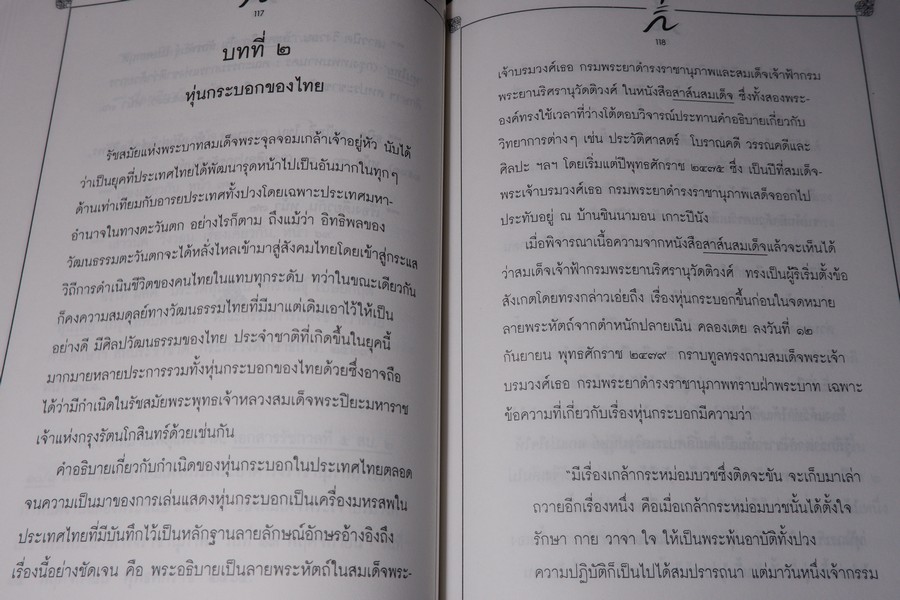 117
บทที่ ๒
หุ่นกระบอกของไทย
รัชสมัยแห่งพระบาทสมเด็จพระจุลจอมเกล้าเจ้าอยู่หัว นับได้
ว่าเป็นยุคที่ประเทศไทยได้พัฒนารุดหน้าไปเป็นอันมากในทุกๆ
ด้านเท่าเทียมกับอารยประเทศทั้งปวงโดยเฉพาะประเทศมหา-
อำนาจในทางตะวันตก อย่างไรก็ตาม ถึงแม้ว่า อิทธิพลของ
วัฒนธรรมตะวันตกจะได้หลั่งไหลเข้ามาสู่สังคมไทยโดยเข้าสู่กระแส
วิถีการดำเนินชีวิตของคนไทยในแทบทุกระดับ ทว่าในขณะเดียวกัน
ก็คงความสมดุลย์ทางวัฒนธรรมไทยที่มีมาแต่เดิมเอาไว้ให้เป็น
อย่างดี มีศิลปวัฒนธรรมของไทย ประจำชาติที่เกิดขึ้นในยุคนี้
มากมายหลายประการรวมทั้งหุ่นกระบอกของไทยด้วยซึ่งอาจถือ
ได้ว่ามีกำเนิดในรัชสมัยพระพุทธเจ้าหลวงสมเด็จพระปิยะมหาราช
เจ้าแห่งกรุงรัตนโกสินทร์ด้วยเช่นกัน
คำอธิบายเกี่ยวกับกำเนิดของหุ่นกระบอกในประเทศไทยตลอด
จนความเป็นมาของการเล่นแสดงหุ่นกระบอกเป็นเครื่องมหรสพใน
ประเทศไทยที่มีบันทึกไว้เป็นหลักฐานลายลักษณ์อักษรอ้างอิงถึง
เรื่องนี้อย่างชัดเจน คือ พระอธิบายเป็นลายพระหัตถ์ในสมเด็จพระ-
118
เจ้าบรมวงศ์เธอ กรมพระยาดำรงราชานุภาพและสมเด็จเจ้าฟ้ากรม
พระยานริศรานุวัดติวงศ์ ในหนังสือสาส์นสมเด็จ ซึ่งทั้งสองพระ-
องค์ทรงใช้เวลาที่ว่างโต้ตอบวิจารณ์ประทานคำอธิบายเกี่ยวกับ
วิทยาการต่างๆ เช่น ประวัติศาสตร์ โบราณคดี วรรณคดีและ
ศิลปะ ฯลฯ โดยเริ่มแต่ปีพุทธศักราช ๒๔๗๕ ซึ่ง เป็นปีที่สมเด็จ-
พระเจ้าบรมวงศ์เธอ กรมพระยาดำรงราชานุภาพเสด็จออกไป
ประทับอยู่ ณ บ้านซินนามอน เกาะปีนัง
เมื่อพิจารณาเนื้อความจากหนังสือสาส์นสมเด็จแล้วจะเห็นได้
ว่าสมเด็จเจ้าฟ้ากรมพระยานริศรานุวัดติวงศ์ ทรงเป็นผู้ริเริ่มตั้งข้อ
สังเกตโดยทรงกล่าวเอ่ยถึง เรื่องหุ่นกระบอกขึ้นก่อนในจดหมาย
ลายพระหัตถ์จากตำหนักปลายเนิน คลองเตย ลงวันที่ ๑๒
กันยายน พุทธศักราช ๒๔๗๙ กราบทูลทรงถามสมเด็จพระเจ้า
บรมวงศ์เธอ กรมพระยาดำรงราชานุภาพทราบฝ่าพระบาท เฉพาะ
ข้อความที่เกี่ยวกับเรื่องหุ่นกระบอกมีความว่า
"มีเรื่องเกล้ากระหม่อมบวชซึ่งติดจะขัน จะเก็บมาเล่า
ถวายอีกเรื่องหนึ่ง คือเมื่อเกล้ากระหม่อมบวชนั้นได้ตั้งใจ
รักษา กาย วาจา ใจ ให้เป็นพระพ้นอาบัติทั้งปวง
ความปฏิบัติก็เป็นไปได้สมปรารถนา แต่มาวันหนึ่งเจ้ากรรม